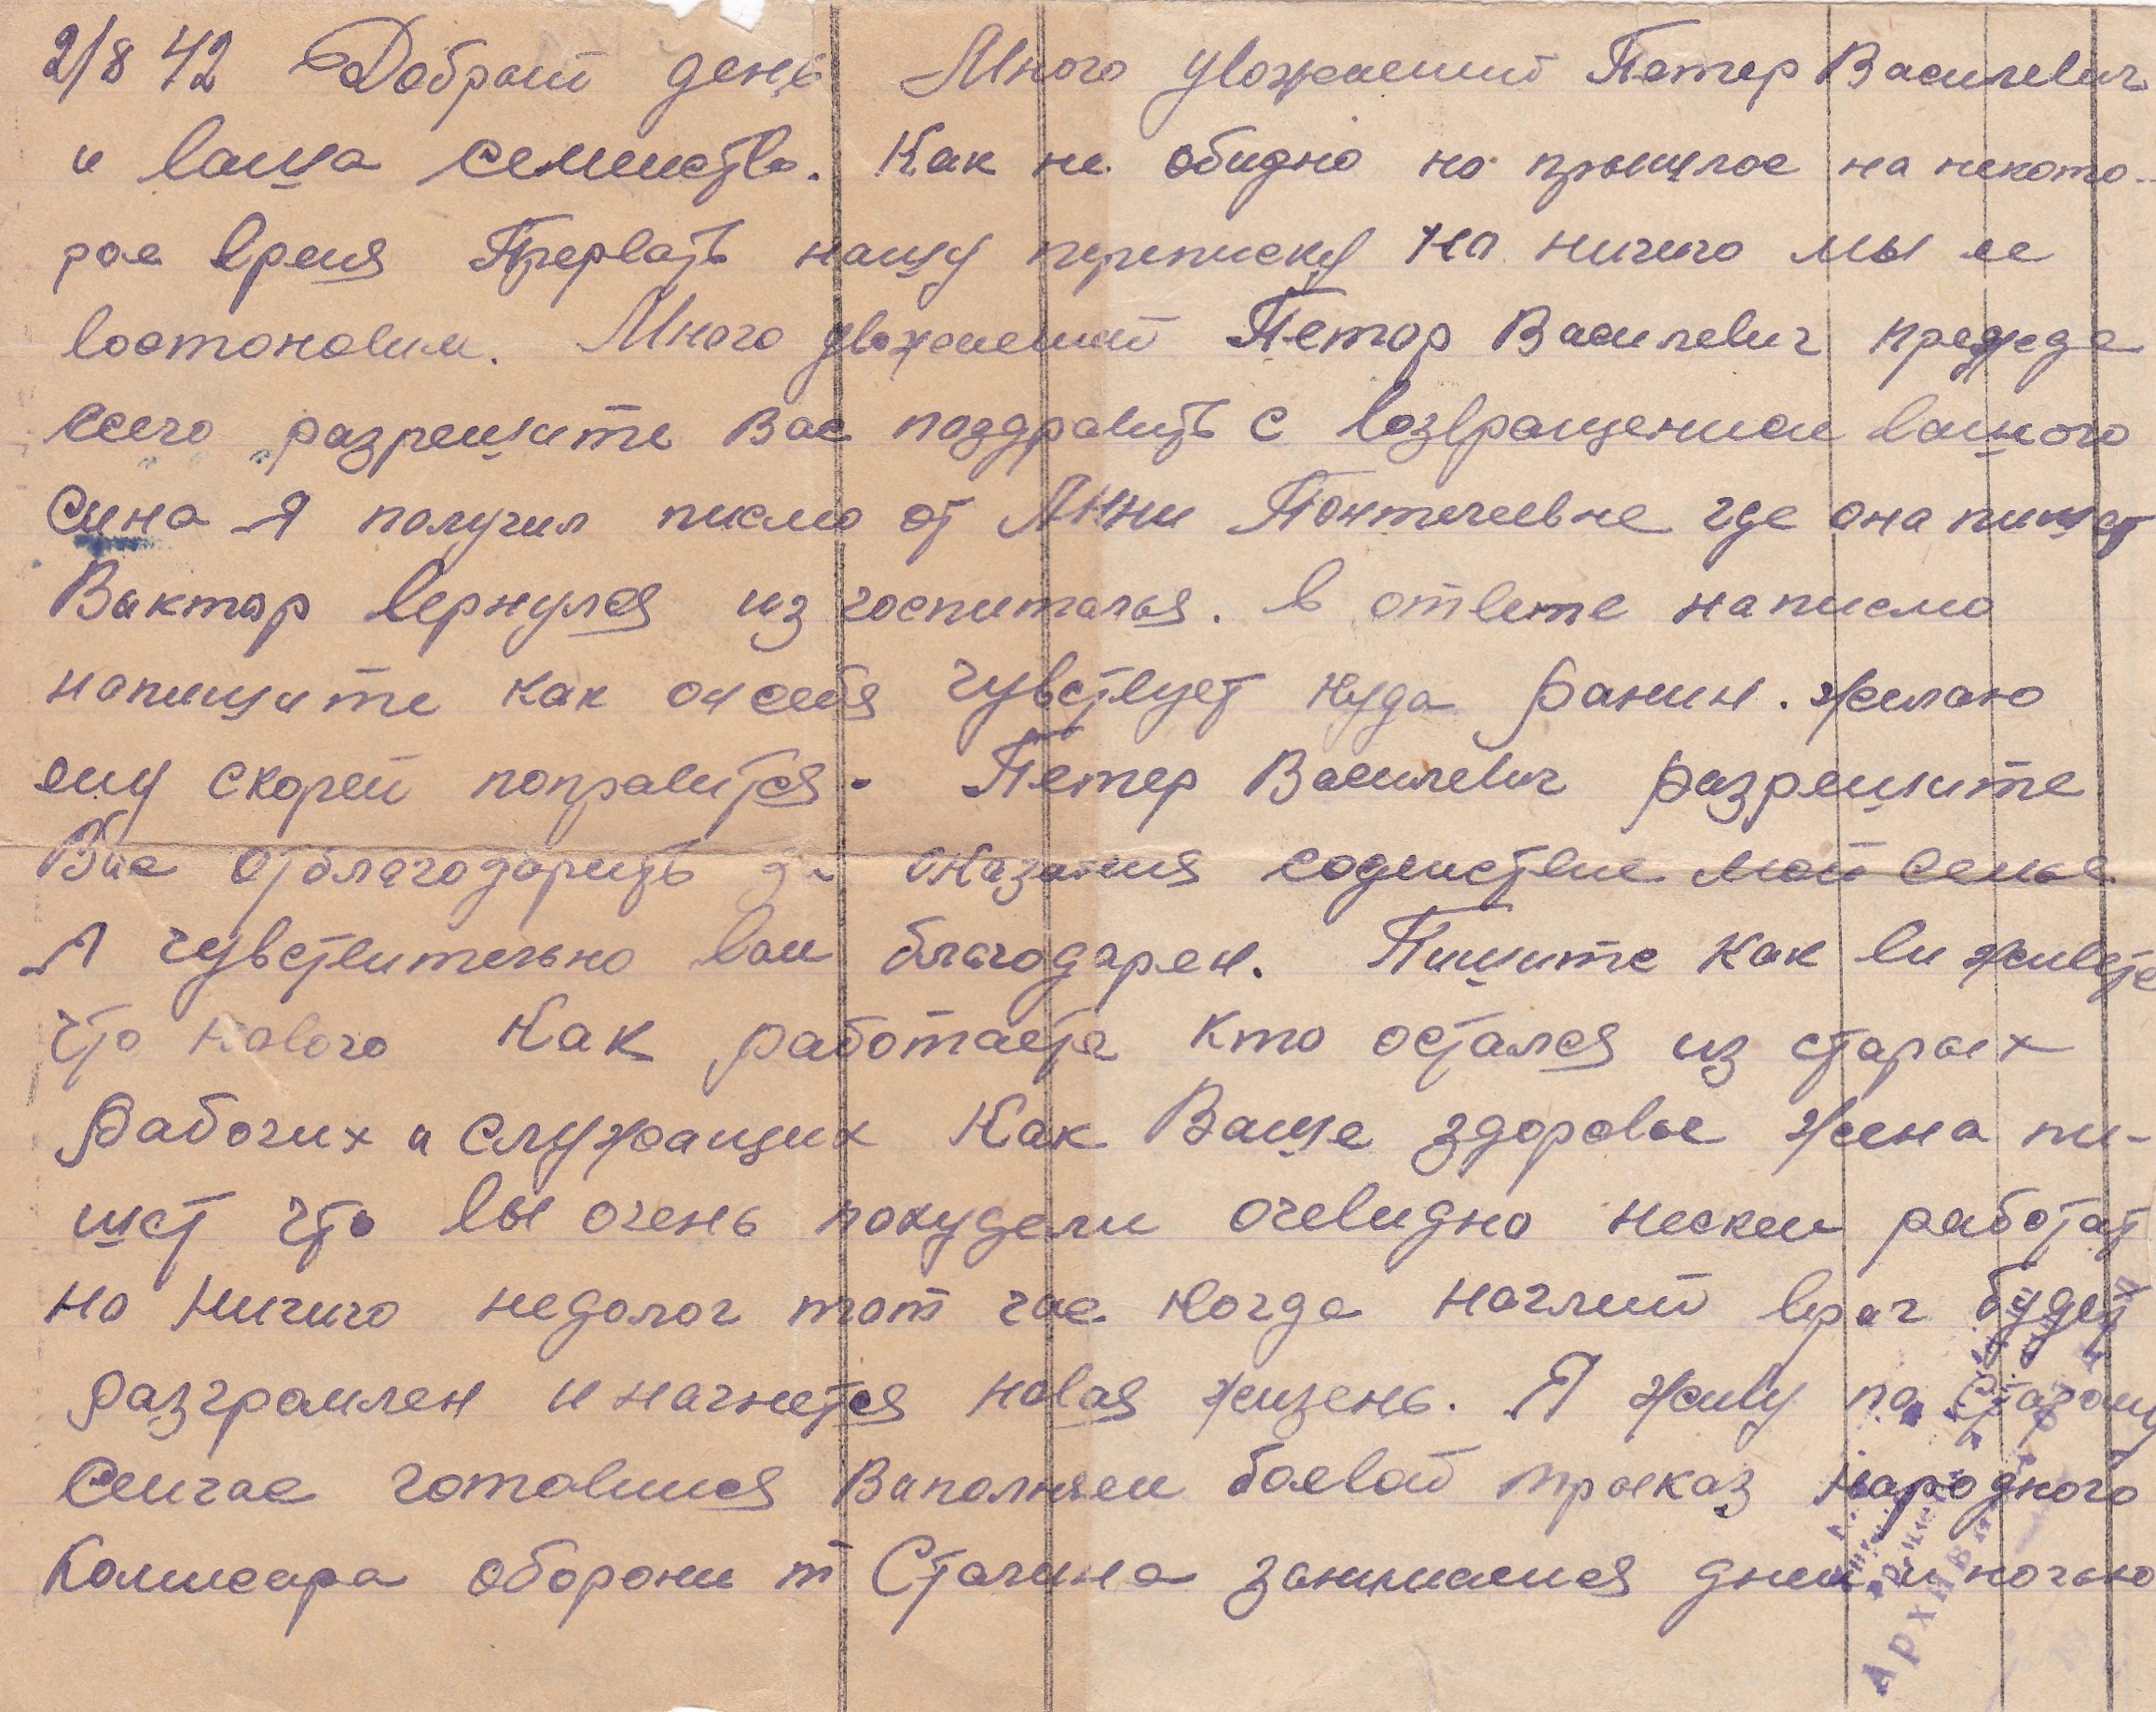 2/8 42 Добрый день Много уважаемий Петер Василевич
и ваша семейство. Как не обидно но пришлос на некото-
рое время Прервать нашу переписку но ничего мы ее
востоновим. Много уважаемий Петор Василевич прежде
всего разрешите Вас поздравить с возвращением вашого
сина Я получил писмо от Анни Понтелеевне где она пишет
Виктор вернулся из госпиталя. в ответе на писмо
напишите как он себя чувствует куда ранин. желаю
ему скорей поправится. Петер Василевич разрешите
Вас отблагодарить за оказания содействие моей семье.
Я чувствительно вам благодарен. Пишите как ви живете
что нового Как работаете кто остался из старых
рабочих и служащих Как Ваше здоровье жена пи-
шет что вы очень похудели очевидно нескем работат
но ничиго недолог тот час когда наглий враг будет
разгромлен и начнется новая жизень. Я живу по старому
Сейчас готовимся Виполняем боевой приказ народного
Комисара оборони т Сталина занимаемся днем и ночью
Архив